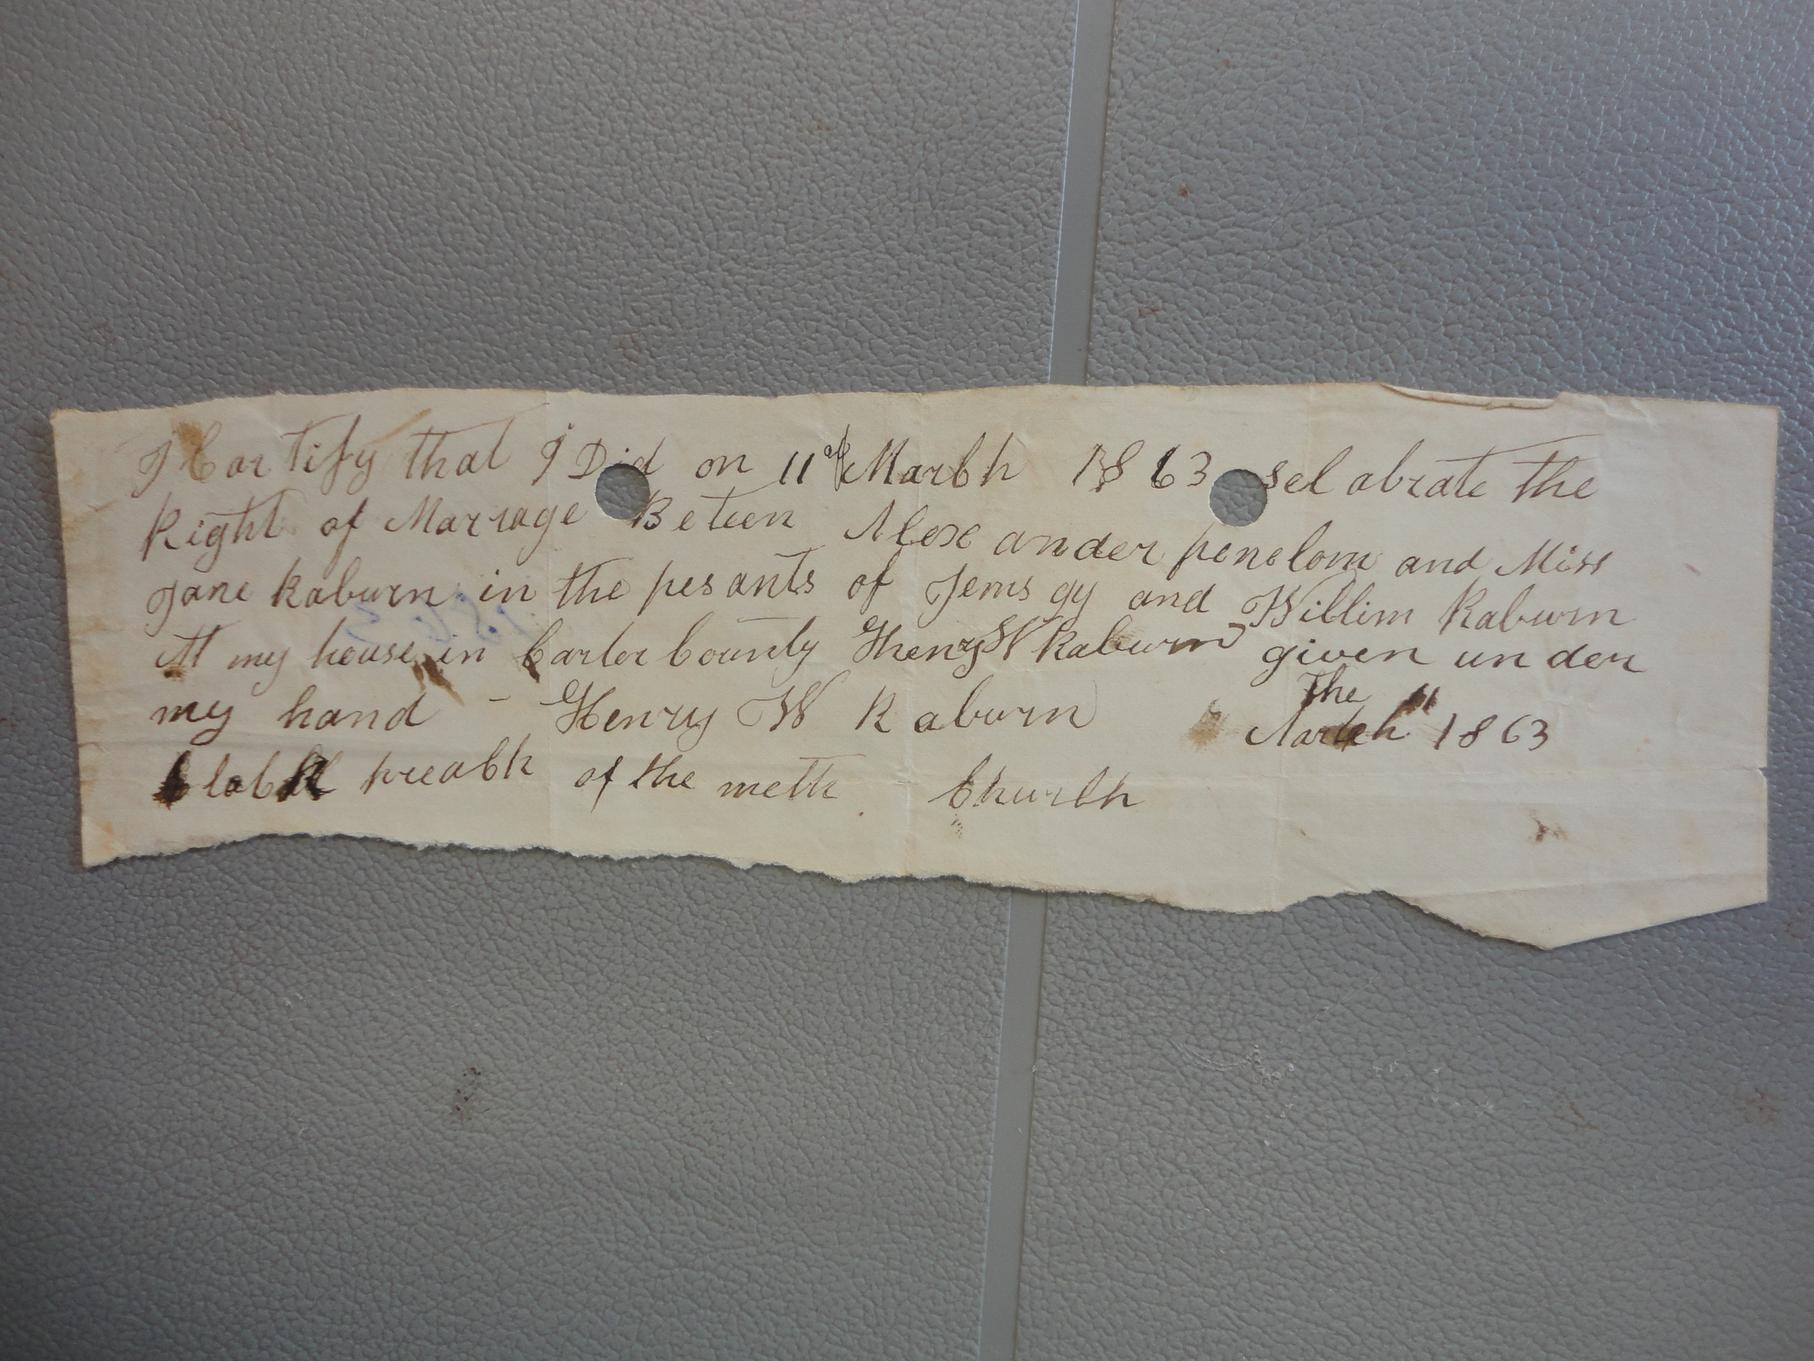 I Cartify that I Did on 11 March 1863 selabrate the
Right of Marriage Beteen Alexander penelom and Miss
Jane Raburn in the pesants of Jems gy and Willim Raburn
At my house in Carter County Henry W Raburn given under
my hand - Henry W Raburn The 11
March 1863
preach of the meth Church